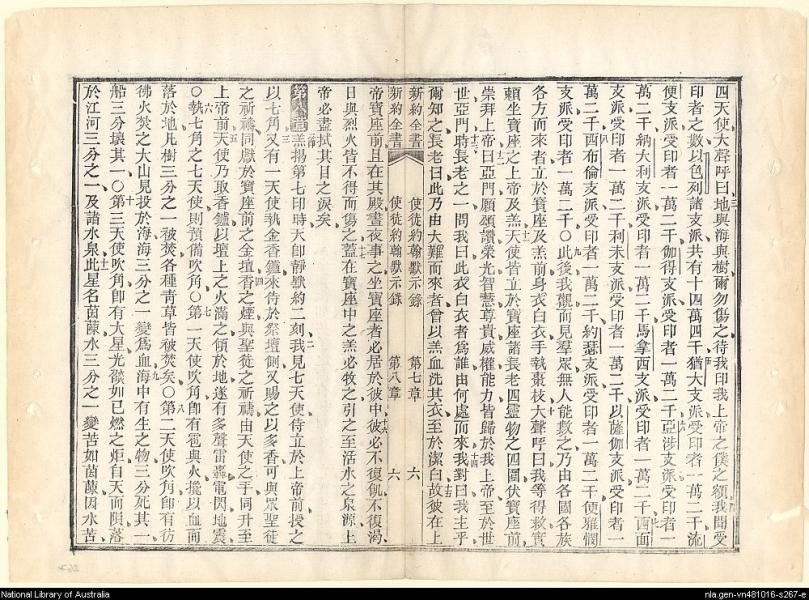 四天使大聲呼曰地與海與樹爾勿傷之待我印我上帝之僕之額我聞受
印者之數以色列諸支派共有十四萬四千猶大支派受印者一萬二千流
便支派受印者一萬二千伽得支派受印者一萬二千亞涉支派受印者一
萬二千納大利支派受印者一萬二千馬拿西支派受印者一萬二千西面
支派受印者一萬二千利未支派受印者一萬二千以薩伽支派受印者一
萬二千西布倫支派受印者一萬二千約瑟支派受印者一萬二千便雅憫
支派受印者一萬二千〇此後我觀而見羣眾無人能數之乃由各國各族
各方而來者立於寶座及羔前身衣白衣手執棗枝大聲呼曰我等得救賓
賴坐寶座之上帝及羔天使皆立於寶座諸長老四靈物之四圍伏寶座前
崇拜上帝曰亞門願頌讚榮光智慧尊貴威權能力皆歸於我上帝至於世
世亞門時長老之一問我曰此衣白衣者為誰由何處而來我對曰我主乎
爾知之長老曰此乃由大難而來者曾以羔血洗其衣至於潔白故彼在上
新約全書 使徒約翰默示錄 第七章 六
新約全書 使徒約翰默示錄 第八章 六
帝寶座前且在其殿晝夜事之坐寶座者必居於彼中彼必不復飢不復渴
日與烈火皆不得而傷之蓋在寶座中之羔必牧之引之至活水之泉源上
帝必盡拭其目之淚矣
第八章 羔揚第七印時天卽靜默約二刻我見七天使侍立於上帝前授之
以七角又有一天使執金香鑪來侍於祭壇側又賜之以多香可與眾聖徒
之祈禱同獻於寶座前之金壇香之煙與聖徒之祈禱由天使之手同升至
上帝前天使乃取香鑪以壇上之火滿之傾於地遂有多聲雷轟電閃地震
〇執七角之七天使則預備吹角〇第一天使吹角卽有雹與火攙以血而
落於地凡樹三分之一被焚各種靑草皆被焚矣〇第二天使吹角卽有彷
彿火焚之大山見投於海海三分之一變爲血海中有生之物三分死其一
船三分壞其一〇第三天使吹角卽有大星光燄如已燃之炬自天而隕落
於江河三分之一及諸水泉此星名茵蔯水三分之一變苦如茵蔯因水苦
National Library of Australia
nla.gen-vn481016-s267-e